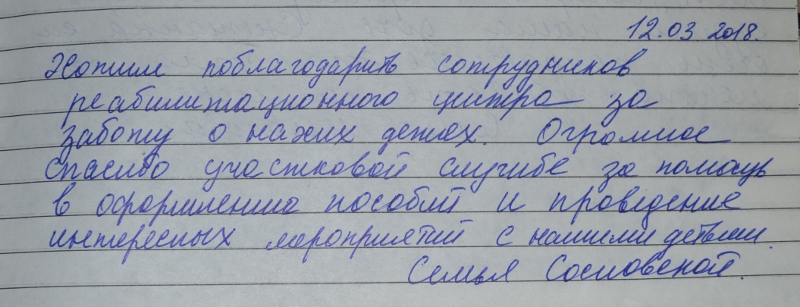 12.03 2018.
Хотим поблагодарить сотрудников
реабилитационного центра за
заботу о наших детях. Огромное
спасибо участковой службе за помощь
в оформлению пособий и проведение
интересных мероприятий с нашими детьми.
Семья Сосновской.